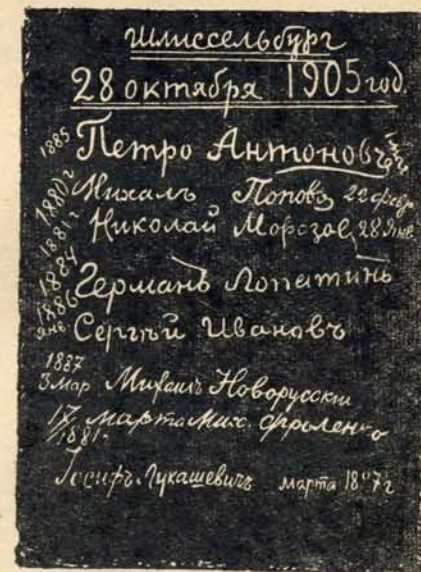 Шлиссельбург
28 октября 1905 год.
1885 Петро Антонов
1880 г Михалъ Попов 22 февр
1881 г Николай Морозов, 28 Янв.
1884 Германъ Лопатинъ
1886 янв Сергѣй Ивановъ
1887
3 мар Михаилъ Новорусский
17 марта Мих. Фроленко
1881 г
Іосифъ Лукашевичъ марта 1887 г